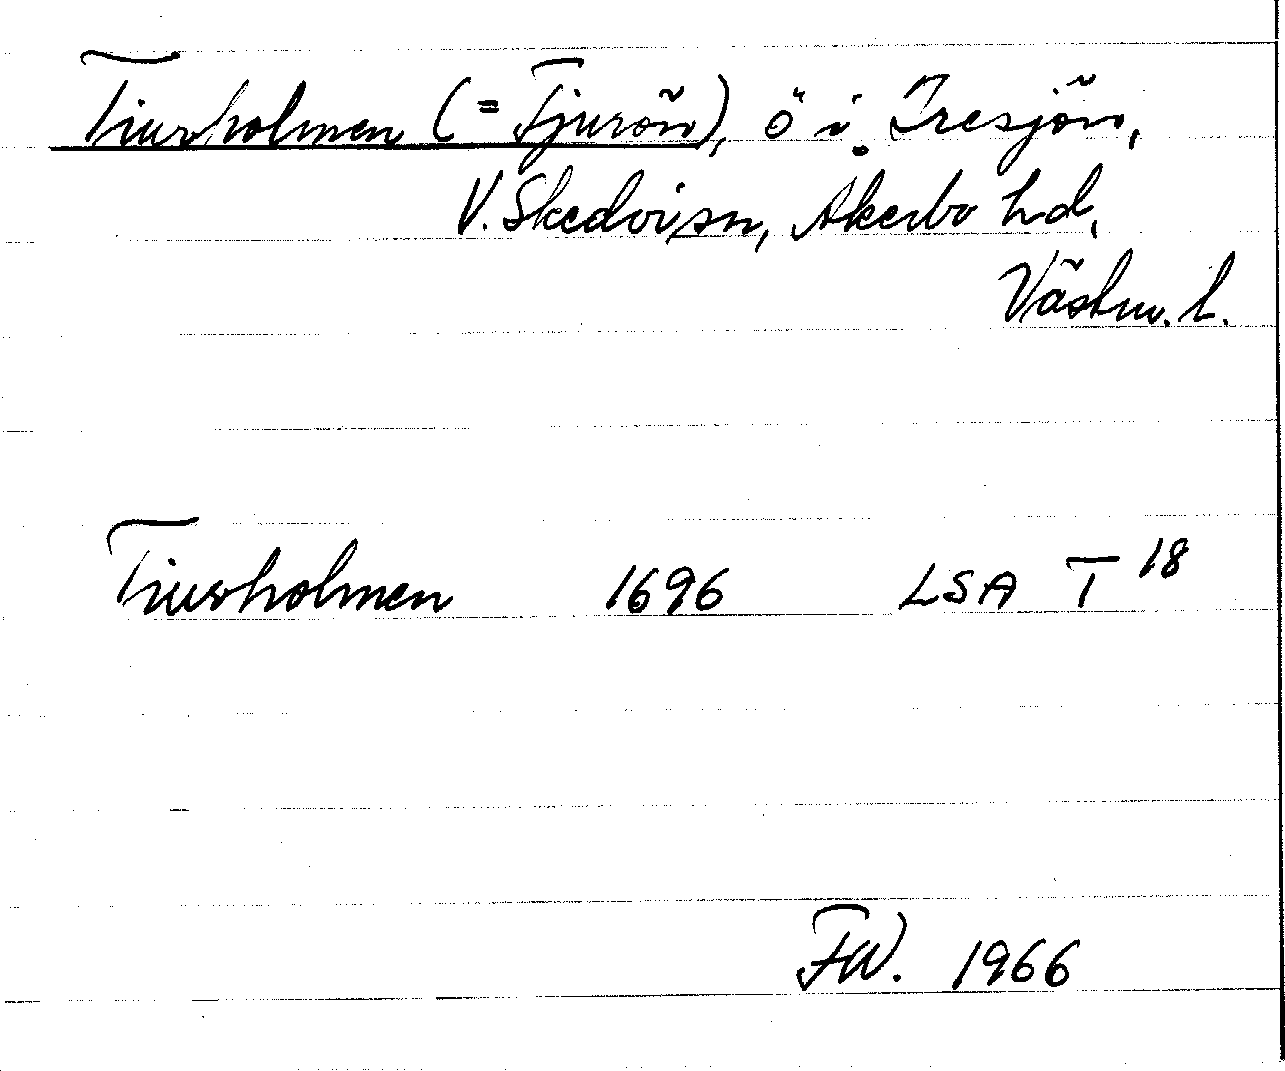 Tiurholmen (= Tjurön), ö i Tresjön,
V. Skedvi sn, Åkerbo hd,
Västm. l.
Tiurholmen 1696 LSA T 18
FW. 1966